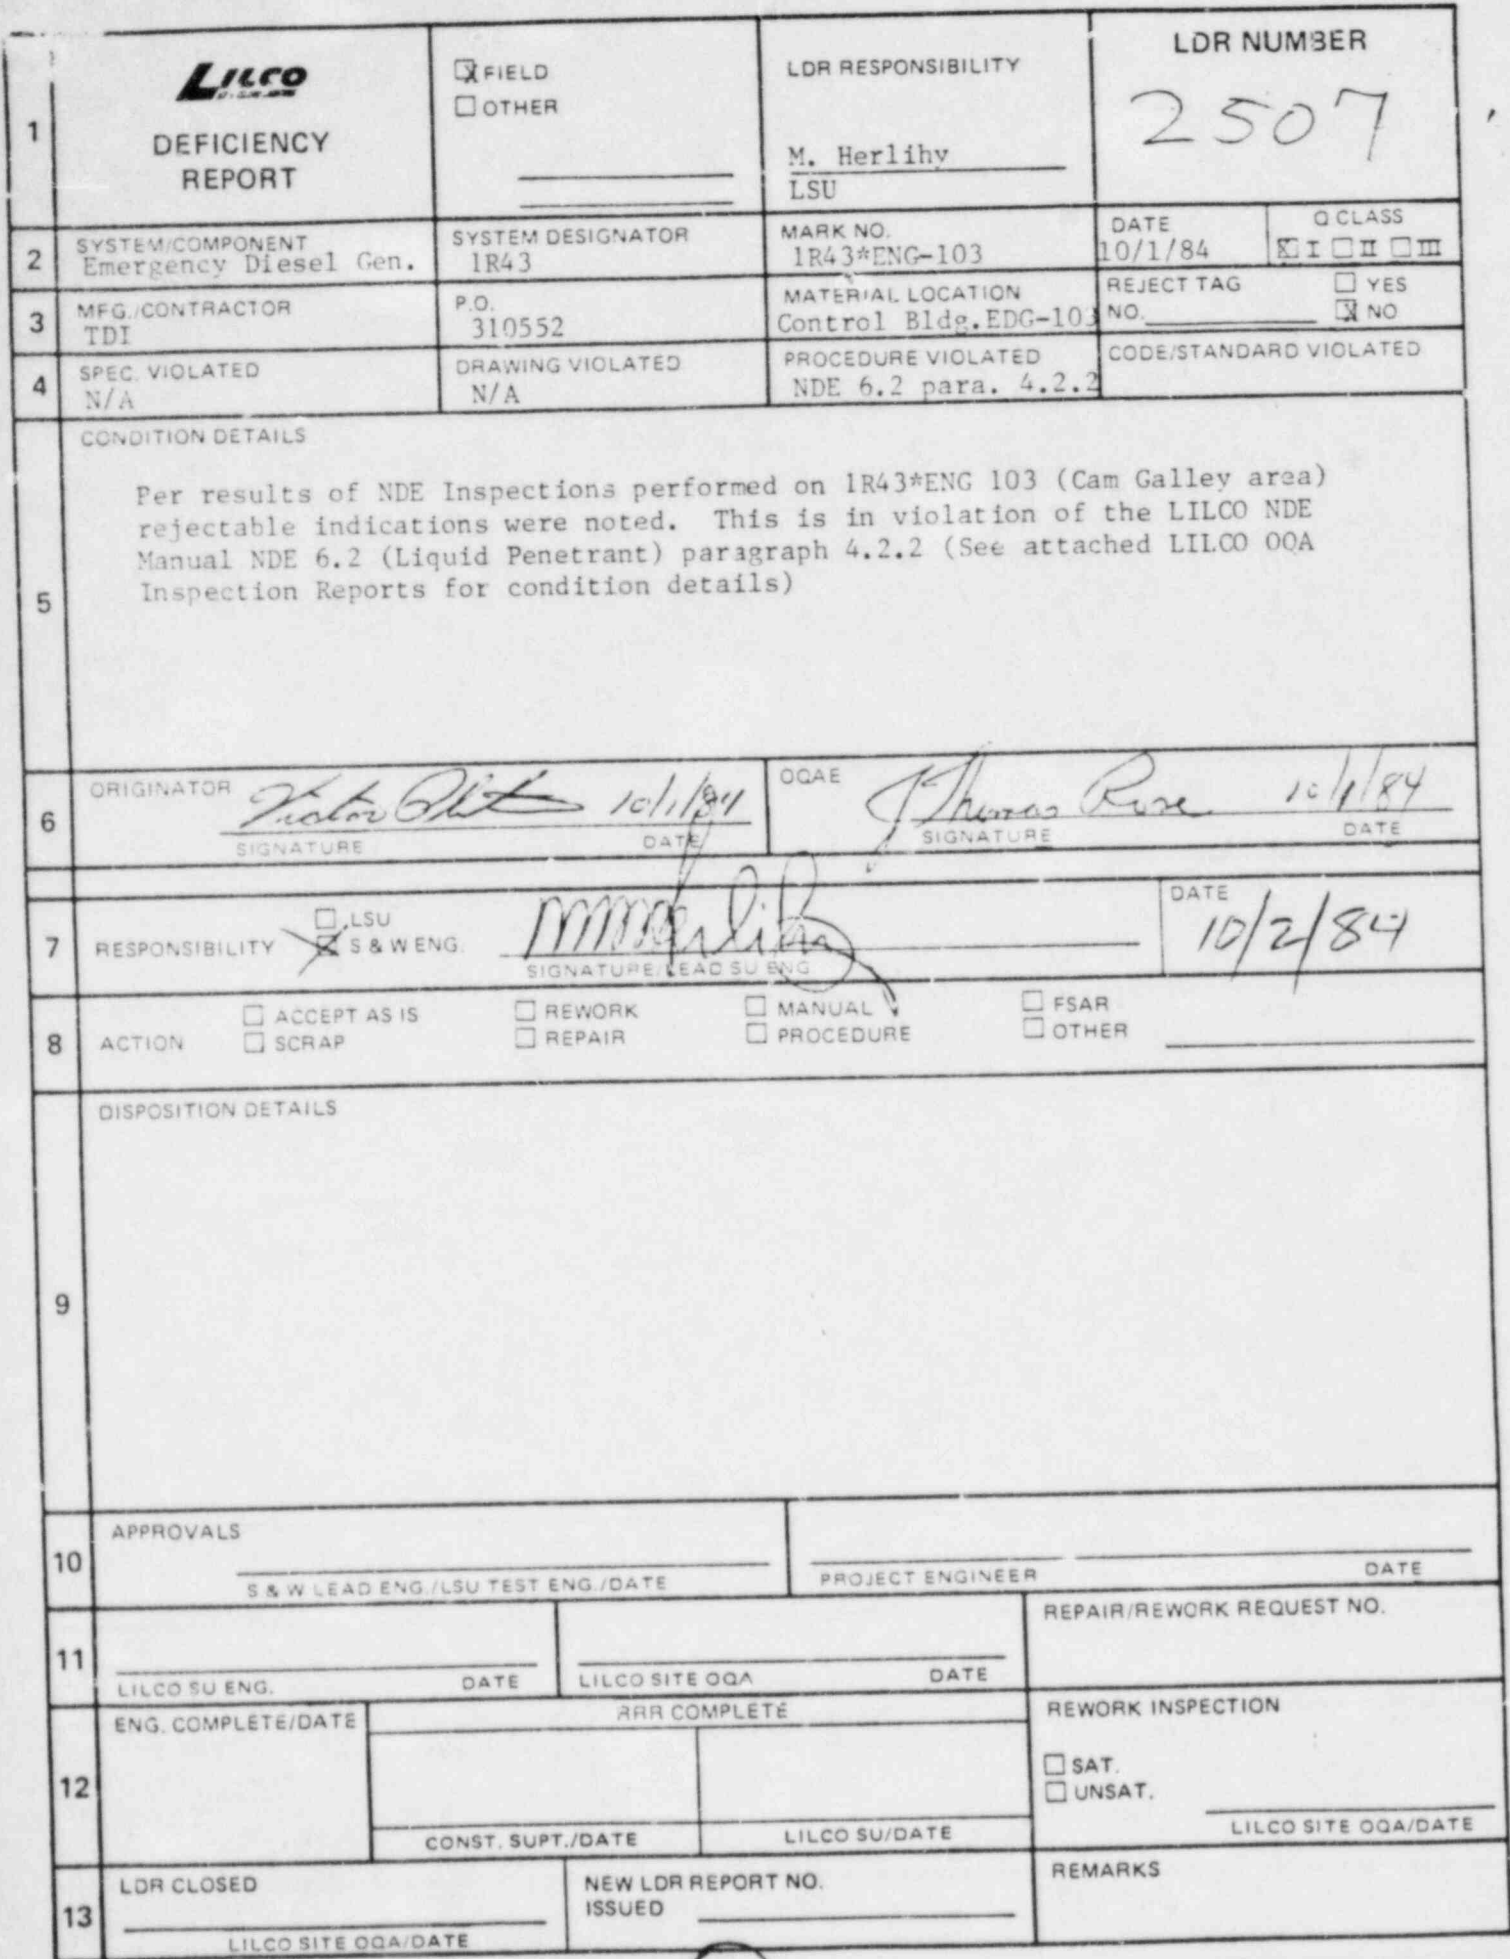 LILCO
DEFICIENCY
REPORT
1
X FIELD
OTHER
LDR RESPONSIBILITY
M. Herlihy
LSU
LDR NUMBER
2507
2
SYSTEM/COMPONENT
Emergency Diesel Gen.
SYSTEM DESIGNATOR
1R43
MARK NO.
1R43*ENG-103
DATE
10/1/84
Q CLASS
X I II III
3
MFG./CONTRACTOR
TDI
P.O.
310552
MATERIAL LOCATION
Control Bldg.EDG-103
REJECT TAG
NO.
YES
X NO
4
SPEC. VIOLATED
N/A
DRAWING VIOLATED
N/A
PROCEDURE VIOLATED
NDE 6.2 para. 4.2.2
CODE/STANDARD VIOLATED
5
CONDITION DETAILS
Per results of NDE Inspections performed on 1R43*ENG 103 (Cam Galley area)
rejectable indications were noted. This is in violation of the LILCO NDE
Manual NDE 6.2 (Liquid Penetrant) paragraph 4.2.2 (See attached LILCO OQA
Inspection Reports for condition details)
6
ORIGINATOR
Victor 10/1/84
SIGNATURE DATE
OQAE
J Thomas Rose 10/1/84
SIGNATURE DATE
7
RESPONSIBILITY
LSU
X S & W ENG.
MMHerlihy
SIGNATURE/LEAD SU ENG
DATE
10/2/84
8
ACTION
ACCEPT AS IS
SCRAP
REWORK
REPAIR
MANUAL
PROCEDURE
FSAR
OTHER
9
DISPOSITION DETAILS
10
APPROVALS
S & W LEAD ENG./LSU TEST ENG./DATE
PROJECT ENGINEER DATE
11
LILCO SU ENG. DATE
LILCO SITE OQA DATE
REPAIR/REWORK REQUEST NO.
12
ENG. COMPLETE/DATE
RRR COMPLETE
CONST. SUPT./DATE
LILCO SU/DATE
REWORK INSPECTION
SAT.
UNSAT.
LILCO SITE OQA/DATE
13
LDR CLOSED
LILCO SITE OQA/DATE
NEW LDR REPORT NO.
ISSUED
REMARKS